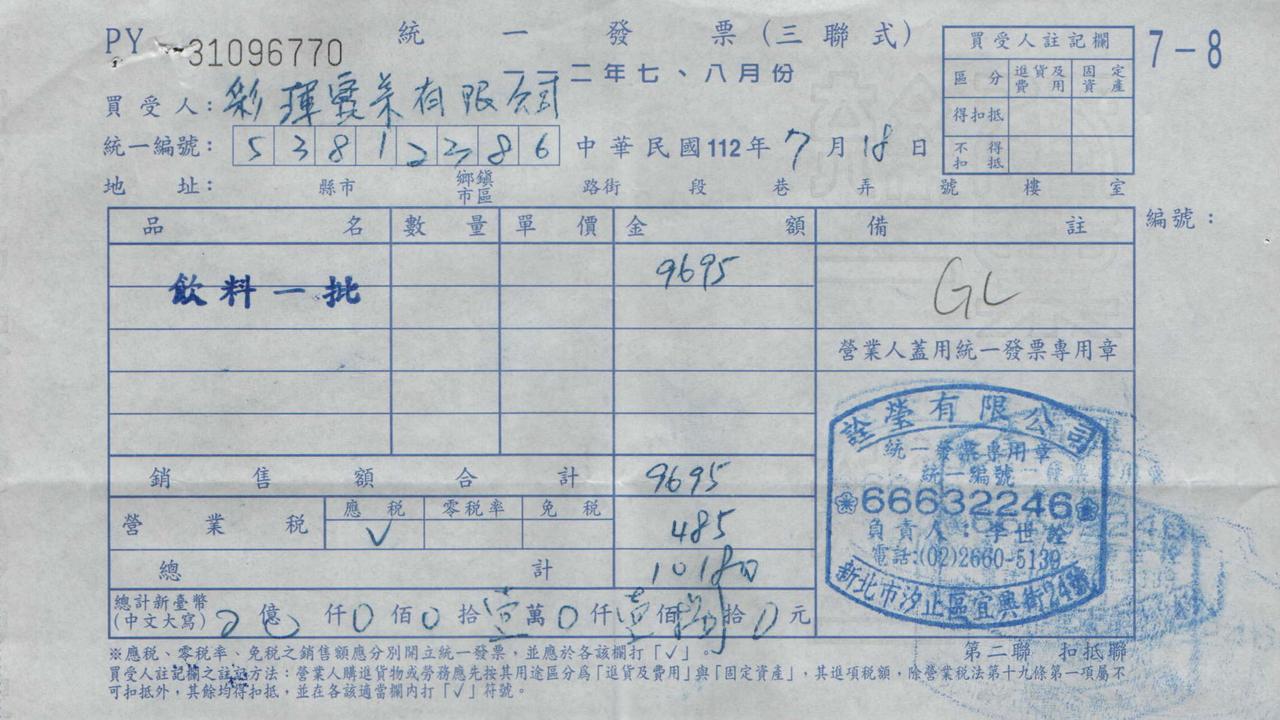 PY 31096770
統一發票(三聯式)
7-8
一一二年七、八月份
買受人註記欄
區分 進貨及費用 固定資產
得扣抵
不得扣抵
買受人: 彩琿實業有限公司
統一編號: 53812286 中華民國112年7月18日
地址: 縣市 鄉鎮市區 路街 段 巷 弄 號 樓 室
品名 數量 單價 金額 備註 編號:
飲料一批 9695 GL
營業人蓋用統一發票專用章
銷售額合計 9695
營業稅 應稅 零稅率 免稅 485
✓
總計 10180
總計新臺幣(中文大寫) 0億 仟0佰0拾壹萬0仟壹佰捌拾0元
詮瑩有限公司
統一發票專用章
統一編號
66632246
負責人:李世詮
電話:(02)2660-5139
新北市汐止區宜興街24號
※應稅、零稅率、免稅之銷售額應分別開立統一發票,並應於各該欄打「✓」。
第二聯 扣抵聯
買受人註記欄之註記方法:營業人購進貨物或勞務應先按其用途區分為「進貨及費用」與「固定資產」,其進項稅額,除營業稅法第十九條第一項屬不
可扣抵外,其餘均得扣抵,並在各該適當欄內打「✓」符號。